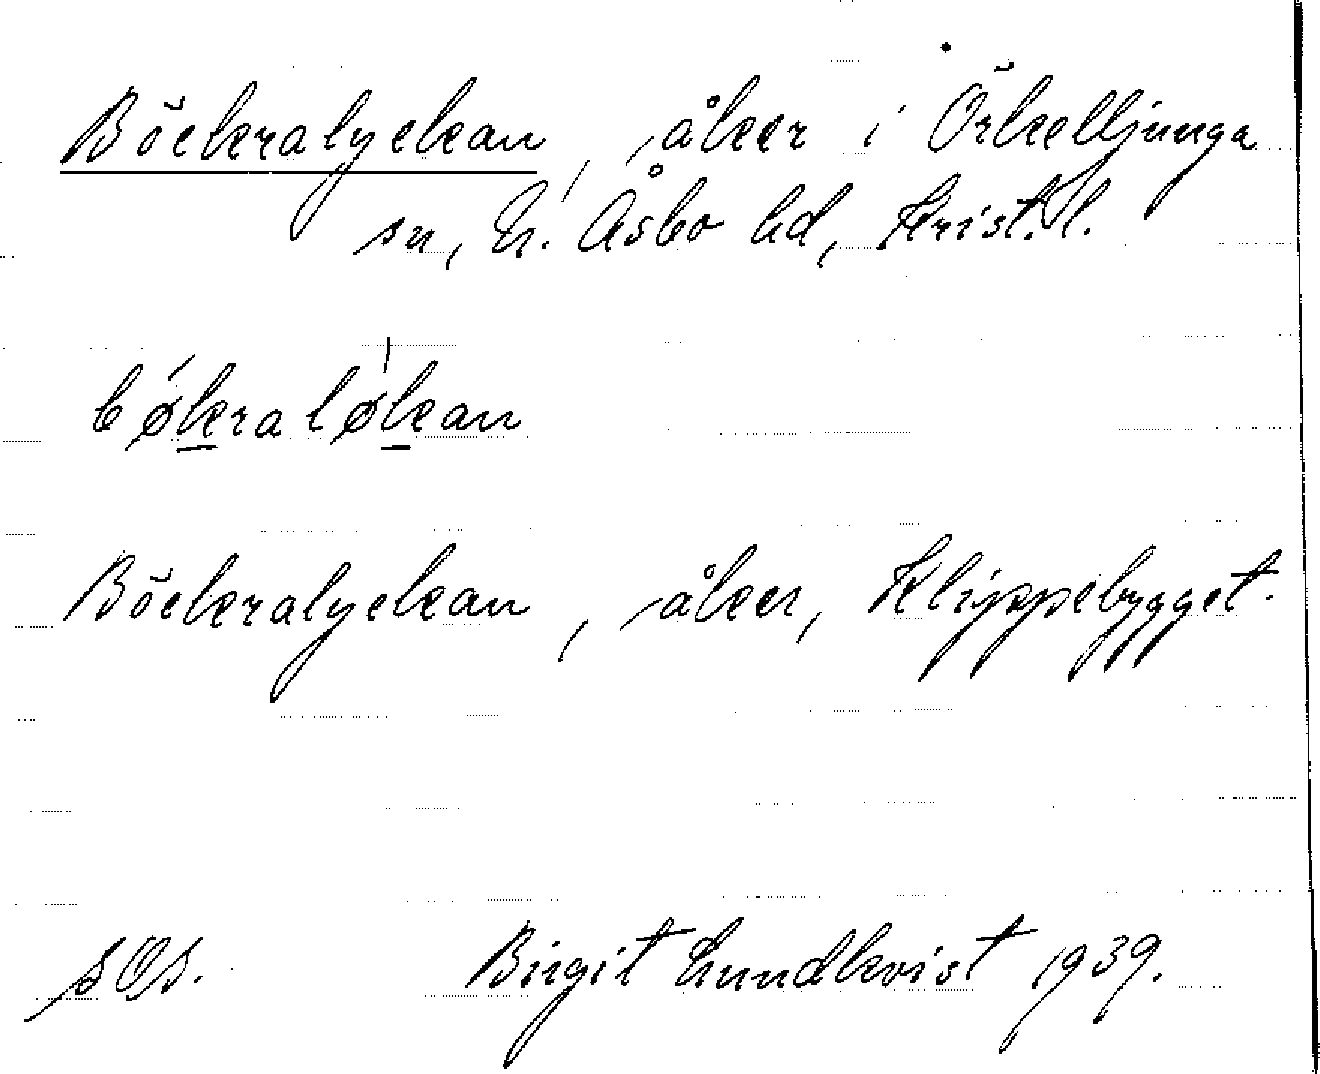 Böckralyckan, åker i Örkelljunga
sn, N. Åsbo hd, Krist. l.
bǿkraløkan
Böckralyckan, åker, Klippebygget.
Birgit Lundkvist 1939.